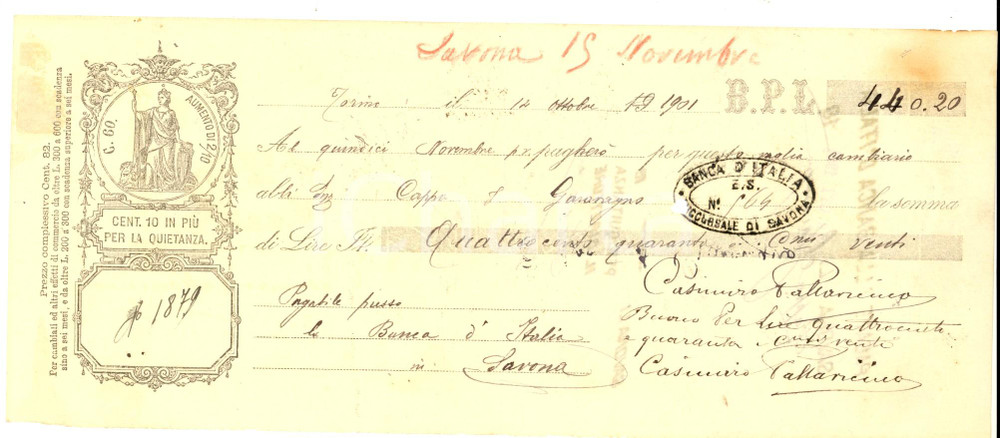 Savona 15 Novembre
Torino il 14 Ottobre 1901 B.P.L. 440.20
Al quindici Novembre px. pagherò per questo vaglia cambiario
alli Sigg Cappa e Garavagno la somma
di Lire It. Quattrocento quaranta Cmi venti
Pagabile presso
la Banca d'Italia
in Savona
Casimiro Pallavicino
Buono Per lire quattrocento
e quaranta e cmi vente
Casimiro Pallavicino
BANCA D'ITALIA
E.S.
N°
SUCCURSALE DI SAVONA
C. 60. AUMENTO DI 2/10
CENT. 10 IN PIÙ
PER LA QUIETANZA.
1879
Prezzo complessivo Cent. 82.
Per cambiali ed altri effetti di commercio da oltre L. 300 a 600 con scadenza
sino a sei mesi, e da oltre L. 200 a 300 con scadenza superiore a sei mesi.